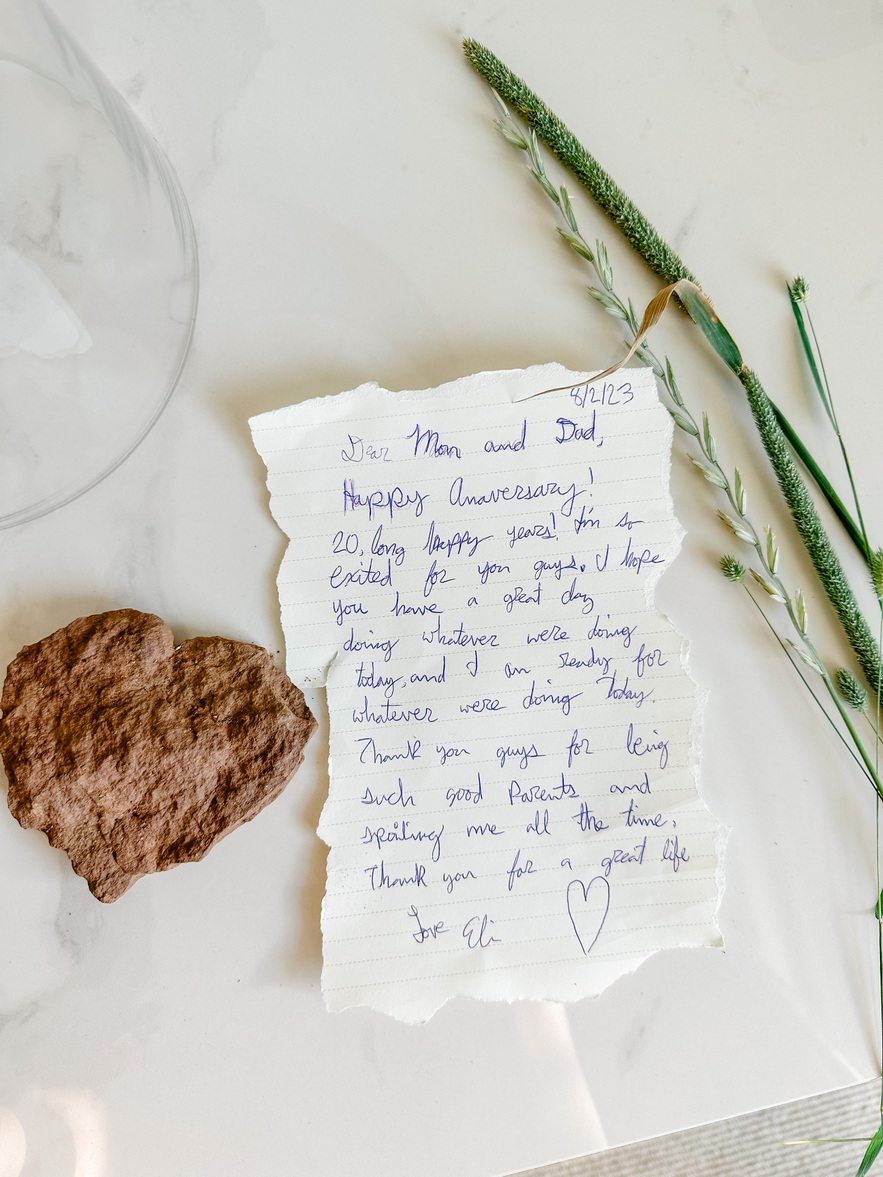 8/2/23
Dear Mom and Dad,
Happy Anaversary!
20, long happy years! I'm so
exited for you guys. I hope
you have a great day
doing whatever were doing
today, and I am ready for
whatever were doing Today.
Thank you guys for being
such good Parents and
spoiling me all the time.
Thank you for a great life
Love Eli